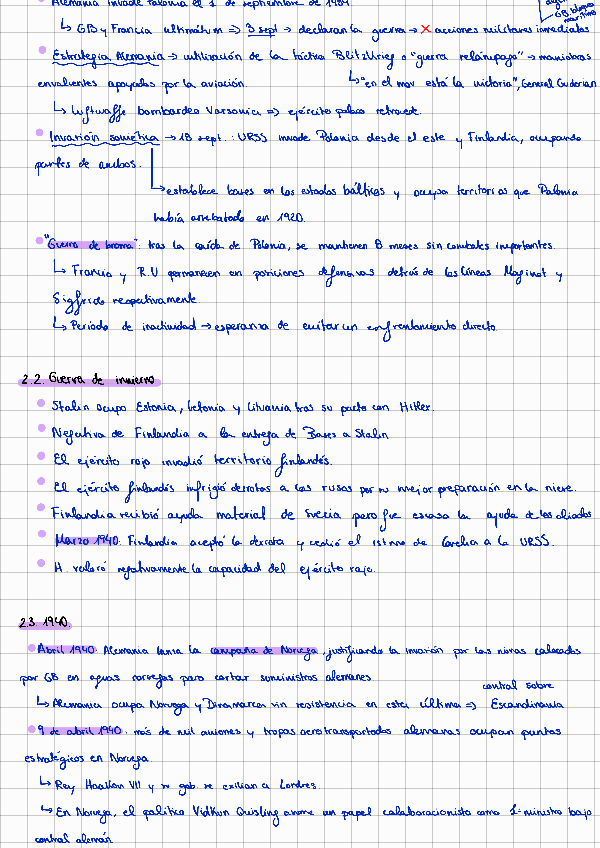 Alemania invade Polonia el 1 de septiembre de 1939
GB. bloqueo marítimo
↳ GB y Francia ultimátum => 3 sept → declaran la guerra → X acciones militares inmediatas
Estrategia Alemania → utilización de la táctica Blitzkrieg o "guerra relámpago" → maniobras
envolventes apoyadas por la aviación. ↳ "en el mov está la victoria", General Guderian
↳ Luftwaffe bombardea Varsovia => ejército polaco retrocede.
Invasión soviética → 18 sept.: URSS invade Polonia desde el este y Finlandia, ocupando
partes de ambos.
↳ establece bases en los estados bálticos y ocupa territorios que Polonia
había arrebatado en 1920.
"Guerra de broma": tras la caída de Polonia, se mantienen 8 meses sin combates importantes.
↳ Francia y R.U permanecen en posiciones defensivas detrás de las líneas Maginot y
Sigfrido respectivamente.
↳ Periodo de inactividad → esperanza de evitar un enfrentamiento directo.
2.2. Guerra de invierno
Stalin ocupó Estonia, Letonia y Lituania tras su pacto con Hitler.
Negativa de Finlandia a la entrega de Bases a Stalin
El ejército rojo invadió territorio finlandés.
El ejército finlandés infrigió derrotas a los rusos por su mejor preparación en la nieve.
Finlandia recibió ayuda material de Suecia pero fue escasa la ayuda de los aliados
Marzo 1940: Finlandia aceptó la derrota y cedió el istmo de Carelia a la URSS.
H. valoró negativamente la capacidad del ejército rojo.
2.3. 1940
Abril 1940: Alemania lanza la campaña de Noruega, justificando la invasión por las minas colocadas
por GB en aguas noruegas para cortar suministros alemanes
↳ Alemania ocupa Noruega y Dinamarca sin resistencia en esta última => control sobre Escandinavia
9 de abril 1940: más de mil aviones y tropas aerotransportadas alemanas ocupan puntos
estratégicos en Noruega
↳ Rey Haakon VII y su gob. se exilian a Londres.
↳ En Noruega, el político Vidkun Quisling asume un papel colaboracionista como 1º ministro bajo
control alemán